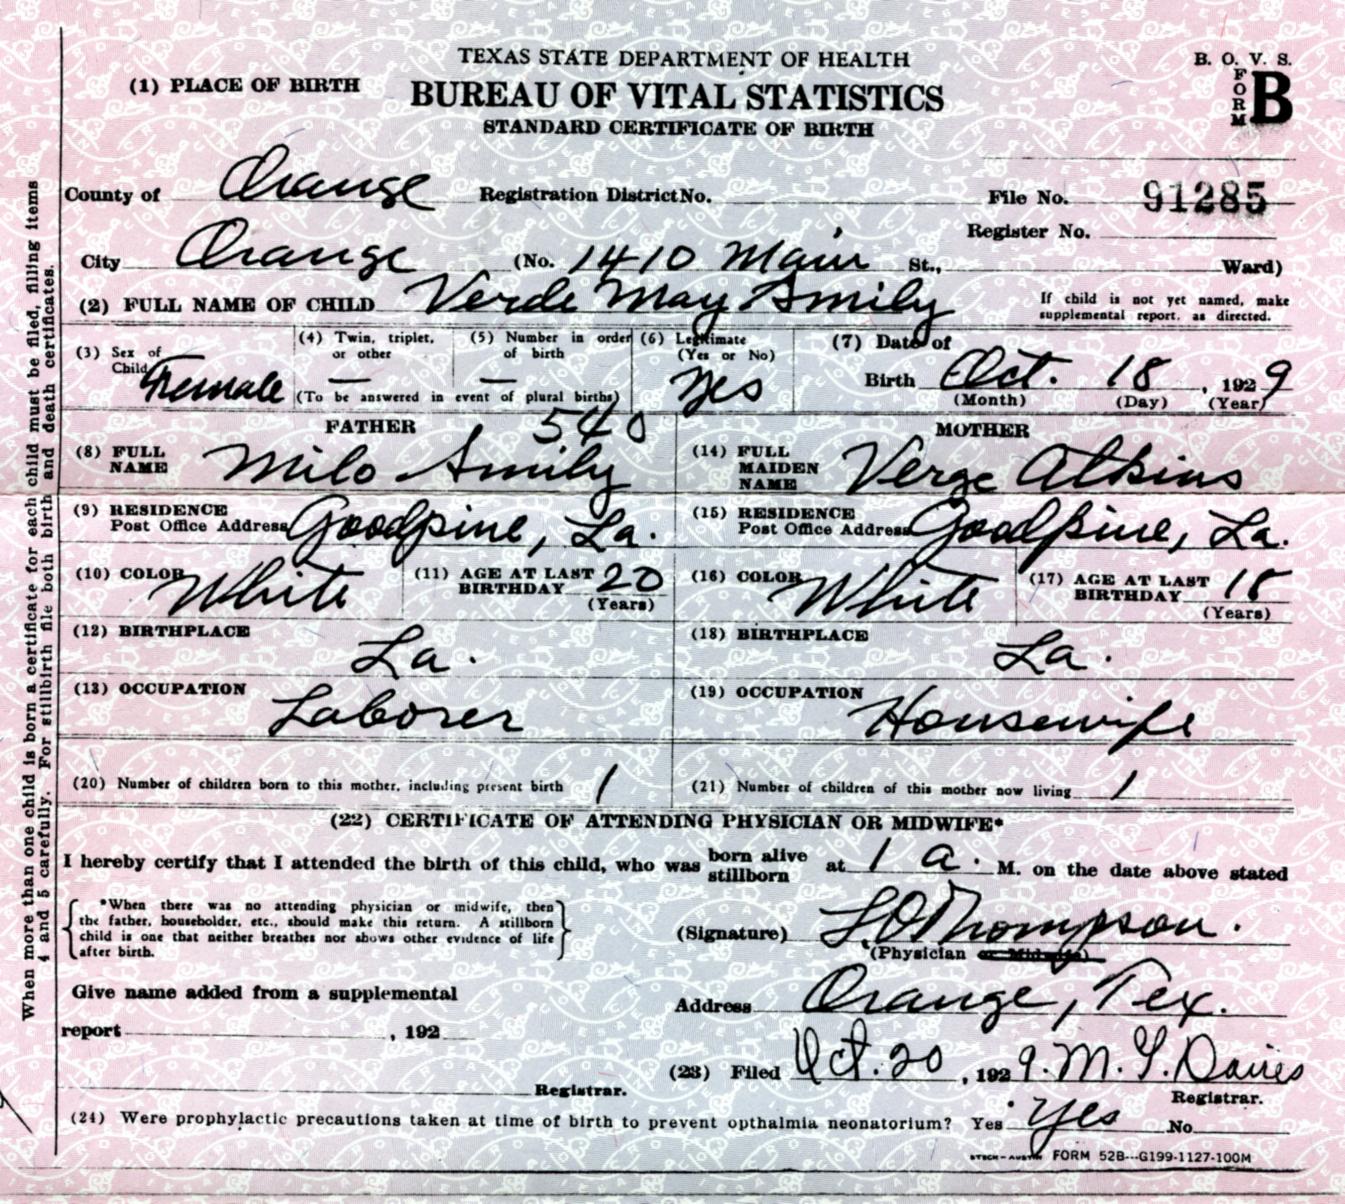 TEXAS STATE DEPARTMENT OF HEALTH
B. O. V. S.
(1) PLACE OF BIRTH
BUREAU OF VITAL STATISTICS
FORM B
STANDARD CERTIFICATE OF BIRTH
County of Orange Registration District No. File No. 91285
Register No.
City Orange (No. 1410 Main St., Ward)
(2) FULL NAME OF CHILD Verde May Smily If child is not yet named, make
supplemental report, as directed.
(3) Sex of Child Female
(4) Twin, triplet, or other —
(5) Number in order of birth —
(To be answered in event of plural births)
(6) Legitimate (Yes or No) Yes
(7) Date of Birth Oct. 18, 1929
(Month) (Day) (Year)
FATHER 540
(8) FULL NAME Milo Smily
(9) RESIDENCE Post Office Address Goodpine, La.
(10) COLOR White (11) AGE AT LAST BIRTHDAY 20 (Years)
(12) BIRTHPLACE La.
(13) OCCUPATION Laborer
MOTHER
(14) FULL MAIDEN NAME Verge Atkins
(15) RESIDENCE Post Office Address Goodpine, La.
(16) COLOR White (17) AGE AT LAST BIRTHDAY 18 (Years)
(18) BIRTHPLACE La.
(19) OCCUPATION Housewife
(20) Number of children born to this mother, including present birth 1
(21) Number of children of this mother now living 1
(22) CERTIFICATE OF ATTENDING PHYSICIAN OR MIDWIFE*
I hereby certify that I attended the birth of this child, who was born alive stillborn at 1 a. M. on the date above stated
*When there was no attending physician or midwife, then
the father, householder, etc., should make this return. A stillborn
child is one that neither breathes nor shows other evidence of life
after birth.
(Signature) Thompson.
(Physician or Midwife)
Give name added from a supplemental
report , 192
Address Orange, Tex.
(23) Filed Oct. 20, 1929. M. Davies
Registrar.
Registrar.
(24) Were prophylactic precautions taken at time of birth to prevent opthalmia neonatorium? Yes Yes No
STECK—AUSTIN FORM 52B---G199-1127-100M
When more than one child is born a certificate for each child must be filed, filling items
4 and 5 carefully. For stillbirth file both birth and death certificates.